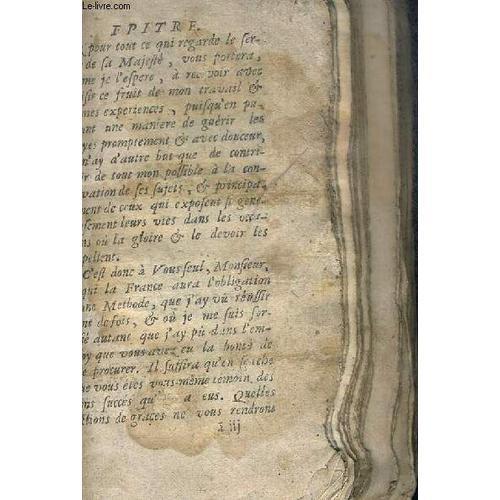 -Livre.com
EPITRE.
pour tout ce qui regarde le ser-
de sa Majesté, vous portera,
me je l'espere, à recevoir avec
sir ce fruit de mon travail &
mes experiences, puisqu'en pu-
ant une maniere de guérir les
yes promptement & avec douceur,
n'ay d'autre but que de contri-
r de tout mon possible à la con-
vation de ses sujets, & principa-
ment de ceux qui exposent si gene-
sement leurs vies dans les occa-
ns où la gloire & le devoir les
pellent.
C'est donc à Vous seul, Monsieur,
qui la France aura l'obligation
ne Methode, que j'ay vû réussir
nt de fois, & où je me suis for-
é autant que j'ay pû dans l'em-
oy que vous avez eu la bonté de
e procurer. Il suffira qu'on sçache
ue vous étes vous-même témoin des
ns succès qu' a eus. Quelles
tions de graces ne vous rendront
à iij